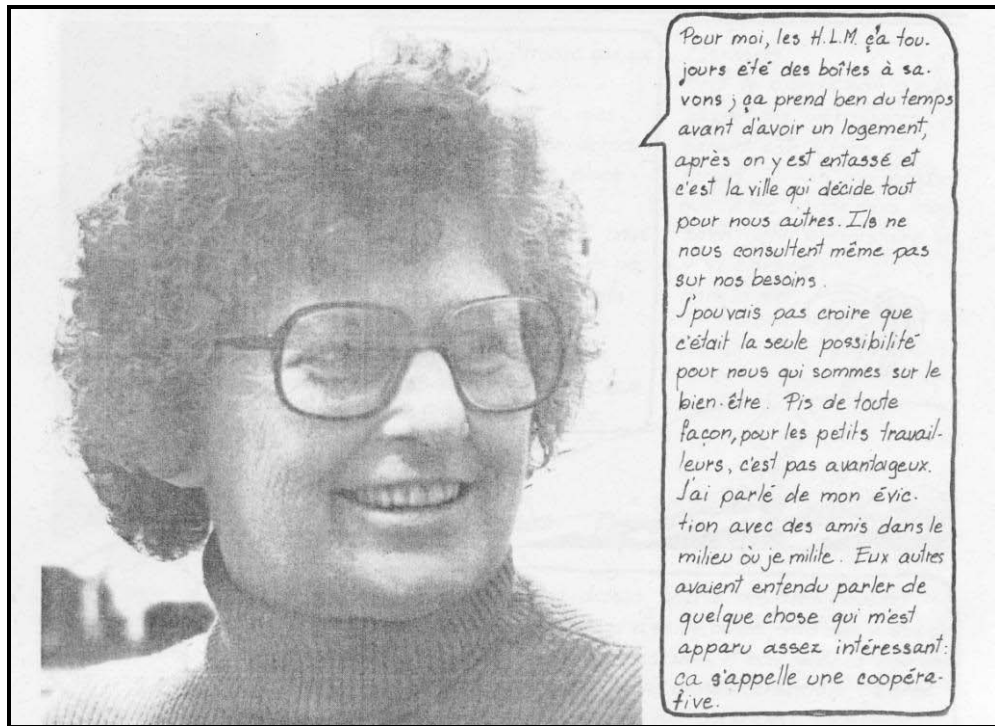 Pour moi, les H.L.M. ç'a tou-
jours été des boîtes à sa-
vons ; ça prend ben du temps
avant d'avoir un logement,
après on y est entassé et
c'est la ville qui décide tout
pour nous autres. Ils ne
nous consultent même pas
sur nos besoins.
J'pouvais pas croire que
c'était la seule possibilité
pour nous qui sommes sur le
bien-être. Pis de toute
façon, pour les petits travail-
leurs, c'est pas avantageux.
J'ai parlé de mon évic-
tion avec des amis dans le
milieu où je milite. Eux autres
avaient entendu parler de
quelque chose qui m'est
apparu assez intéressant:
ca s'appelle une coopéra-
tive.